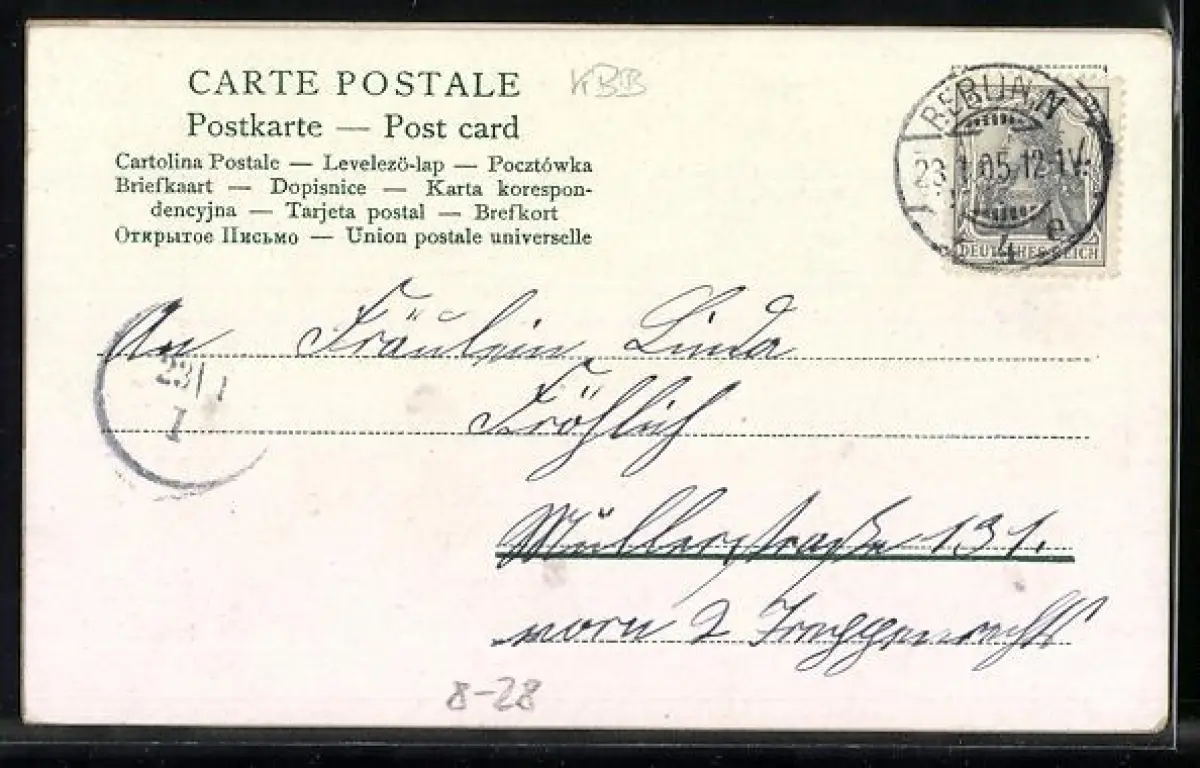 CARTE POSTALE
KBB
Postkarte — Post card
Cartolina Postale — Levelező-lap — Pocztówka
Briefkaart — Dopisnice — Karta korespon-
dencyjna — Tarjeta postal — Brefkort
Открытое Письмо — Union postale universelle
BERLIN N
23.1.05.12-1V.
4 e
DEUTSCHES REICH
An Fräulein Linda
23/1
I
Fröhlich
Müllerstraße 131.
vorn 2 Treppen rechts
8-28